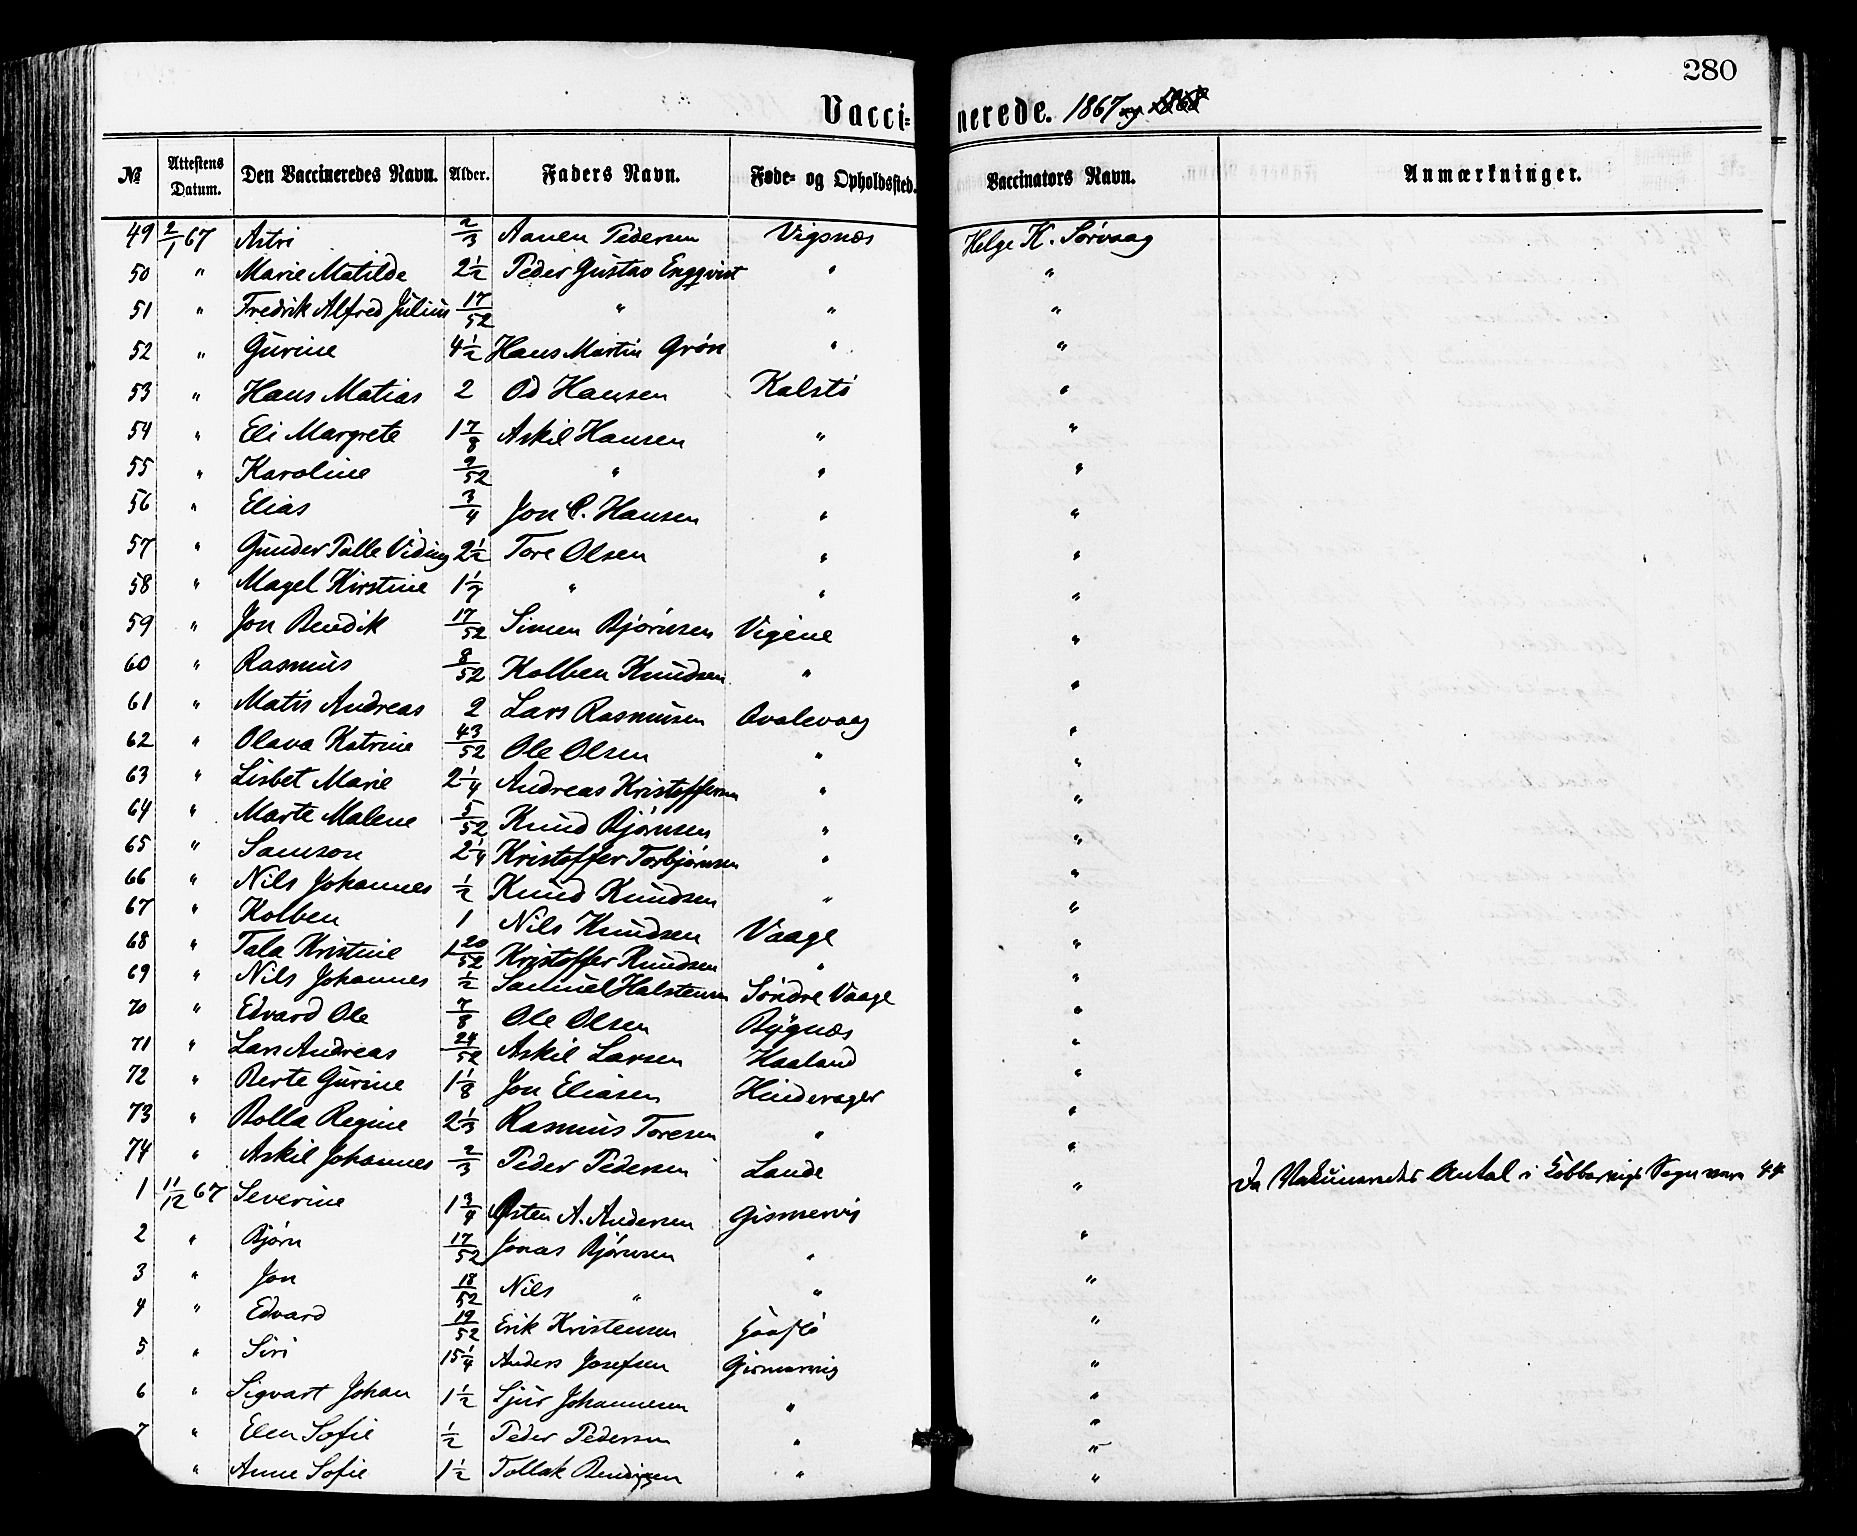 280
Vaccinerede. 1867
№ Attestens Datum. Den Vaccineredes Navn. Alder. Faders Navn. Føde- og Opholdssted. Vaccinators Navn. Anmærkninger.
49 2/1 67 Astri 2/3 Aanen Pedersen Vigsnæs Helge K. Sørvaag
50 " Marie Matilde 2 1/2 Peder Gustav Engqvist " "
51 " Fredrik Alfred Julius 17/52 " " "
52 " Gurine 4 1/2 Hans Martin Grön " "
53 " Hans Matias 2 Od Hansen Kalstö "
54 " Eli Margrete 1 7/8 Askil Hansen " "
55 " Karoline 9/52 " " "
56 " Elias 3/4 Jon C. Hansen " "
57 " Gunder Talle Viding 2 1/2 Tore Olsen " "
58 " Magel Kirstine 1 1/7 " " "
59 " Jon Bendik 17/52 Simen Bjørnsen Vigene "
60 " Rasmus 8/52 Kolben Knudsen " "
61 " Matis Andreas 2 Lars Rasmusen Qvalevaag "
62 " Olava Katrine 43/52 Ole Olsen " "
63 " Lisbet Marie 2 1/4 Andreas Kristoffersen " "
64 " Marte Malene 5/52 Knud Bjørnsen " "
65 " Samson 2 1/4 Kristoffer Torbjørnsen " "
66 " Nils Johannes 1/2 Knud Knudsen " "
67 " Kolben 1 Nils Knudsen Vaage "
68 " Tala Kristine 1 20/52 Kristoffer Knudsen " "
69 " Nils Johannes 1/2 Samuel Halstensen Söndre Vaage "
70 " Edvard Ole 7/8 Ole Olsen Bygnæs "
71 " Lars Andreas 24/52 Askil Larsen Haaland "
72 " Berte Gurine 1 1/8 Jon Eliasen Hinderager "
73 " Bolla Regine 2 1/3 Rasmus Toresen " "
74 " Askil Johannes 2/3 Peder Pedersen Lande "
1 11/12 67 Severine 1 3/4 Østen A. Andersen Gismervig " Antal i Sogn 44
2 " Bjørn 17/52 Jonas Bjørnsen " "
3 " Jon 18/52 Nils " " "
4 " Edvard 19/52 Erik Kristensen "
5 " Siri 15 1/4 Anders Josefsen Gismervig "
6 " Sigvart Johan 1 1/2 Sjur Johannesen " "
7 " Elen Sofie 1/2 Peder Pedersen " "
" Anne Sofie 1 1/2 Tollak Bendigsen " "